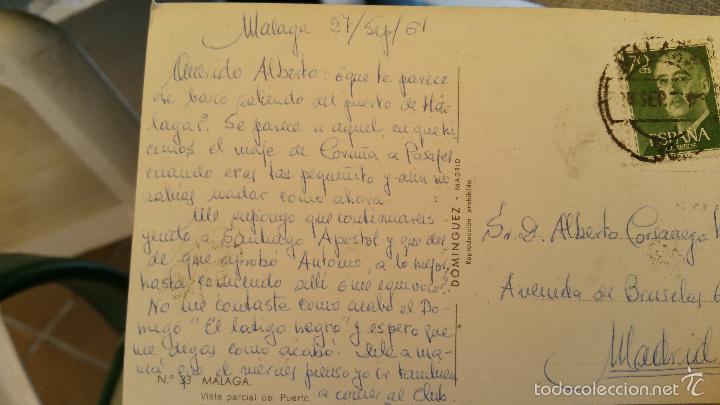 Malaga 27/Sep/61
Querido Alberto: ¿que te parece
ese barco saliendo del puerto de Má-
laga?. Se parece a aquel, en que hi
cimos el viaje de Coruña a Pasajes
cuando eras tan pequeñito y aún no
sabias nadar como ahora.
Me supongo que continuareis
yendo a Santiago Apostol y que des
de que aprobó Antonio, a lo mejor
hasta comiendo allí ¿me equivoco?.
No me contaste como acabó el Do-
mingo "El latigo negro" y espero que
me digas como acabó. Dile a ma-
má que el viernes pienso yo ir tambien
a comer al Club.
Nº 33 MALAGA.
Vista parcial del Puerto
DOMINGUEZ - MADRID
Reproducción prohibida
70 CTS
SEP
ESPAÑA
CORREOS
Sr. D. Alberto
Avenida de Bruselas 6
Madrid
todocoleccion.net